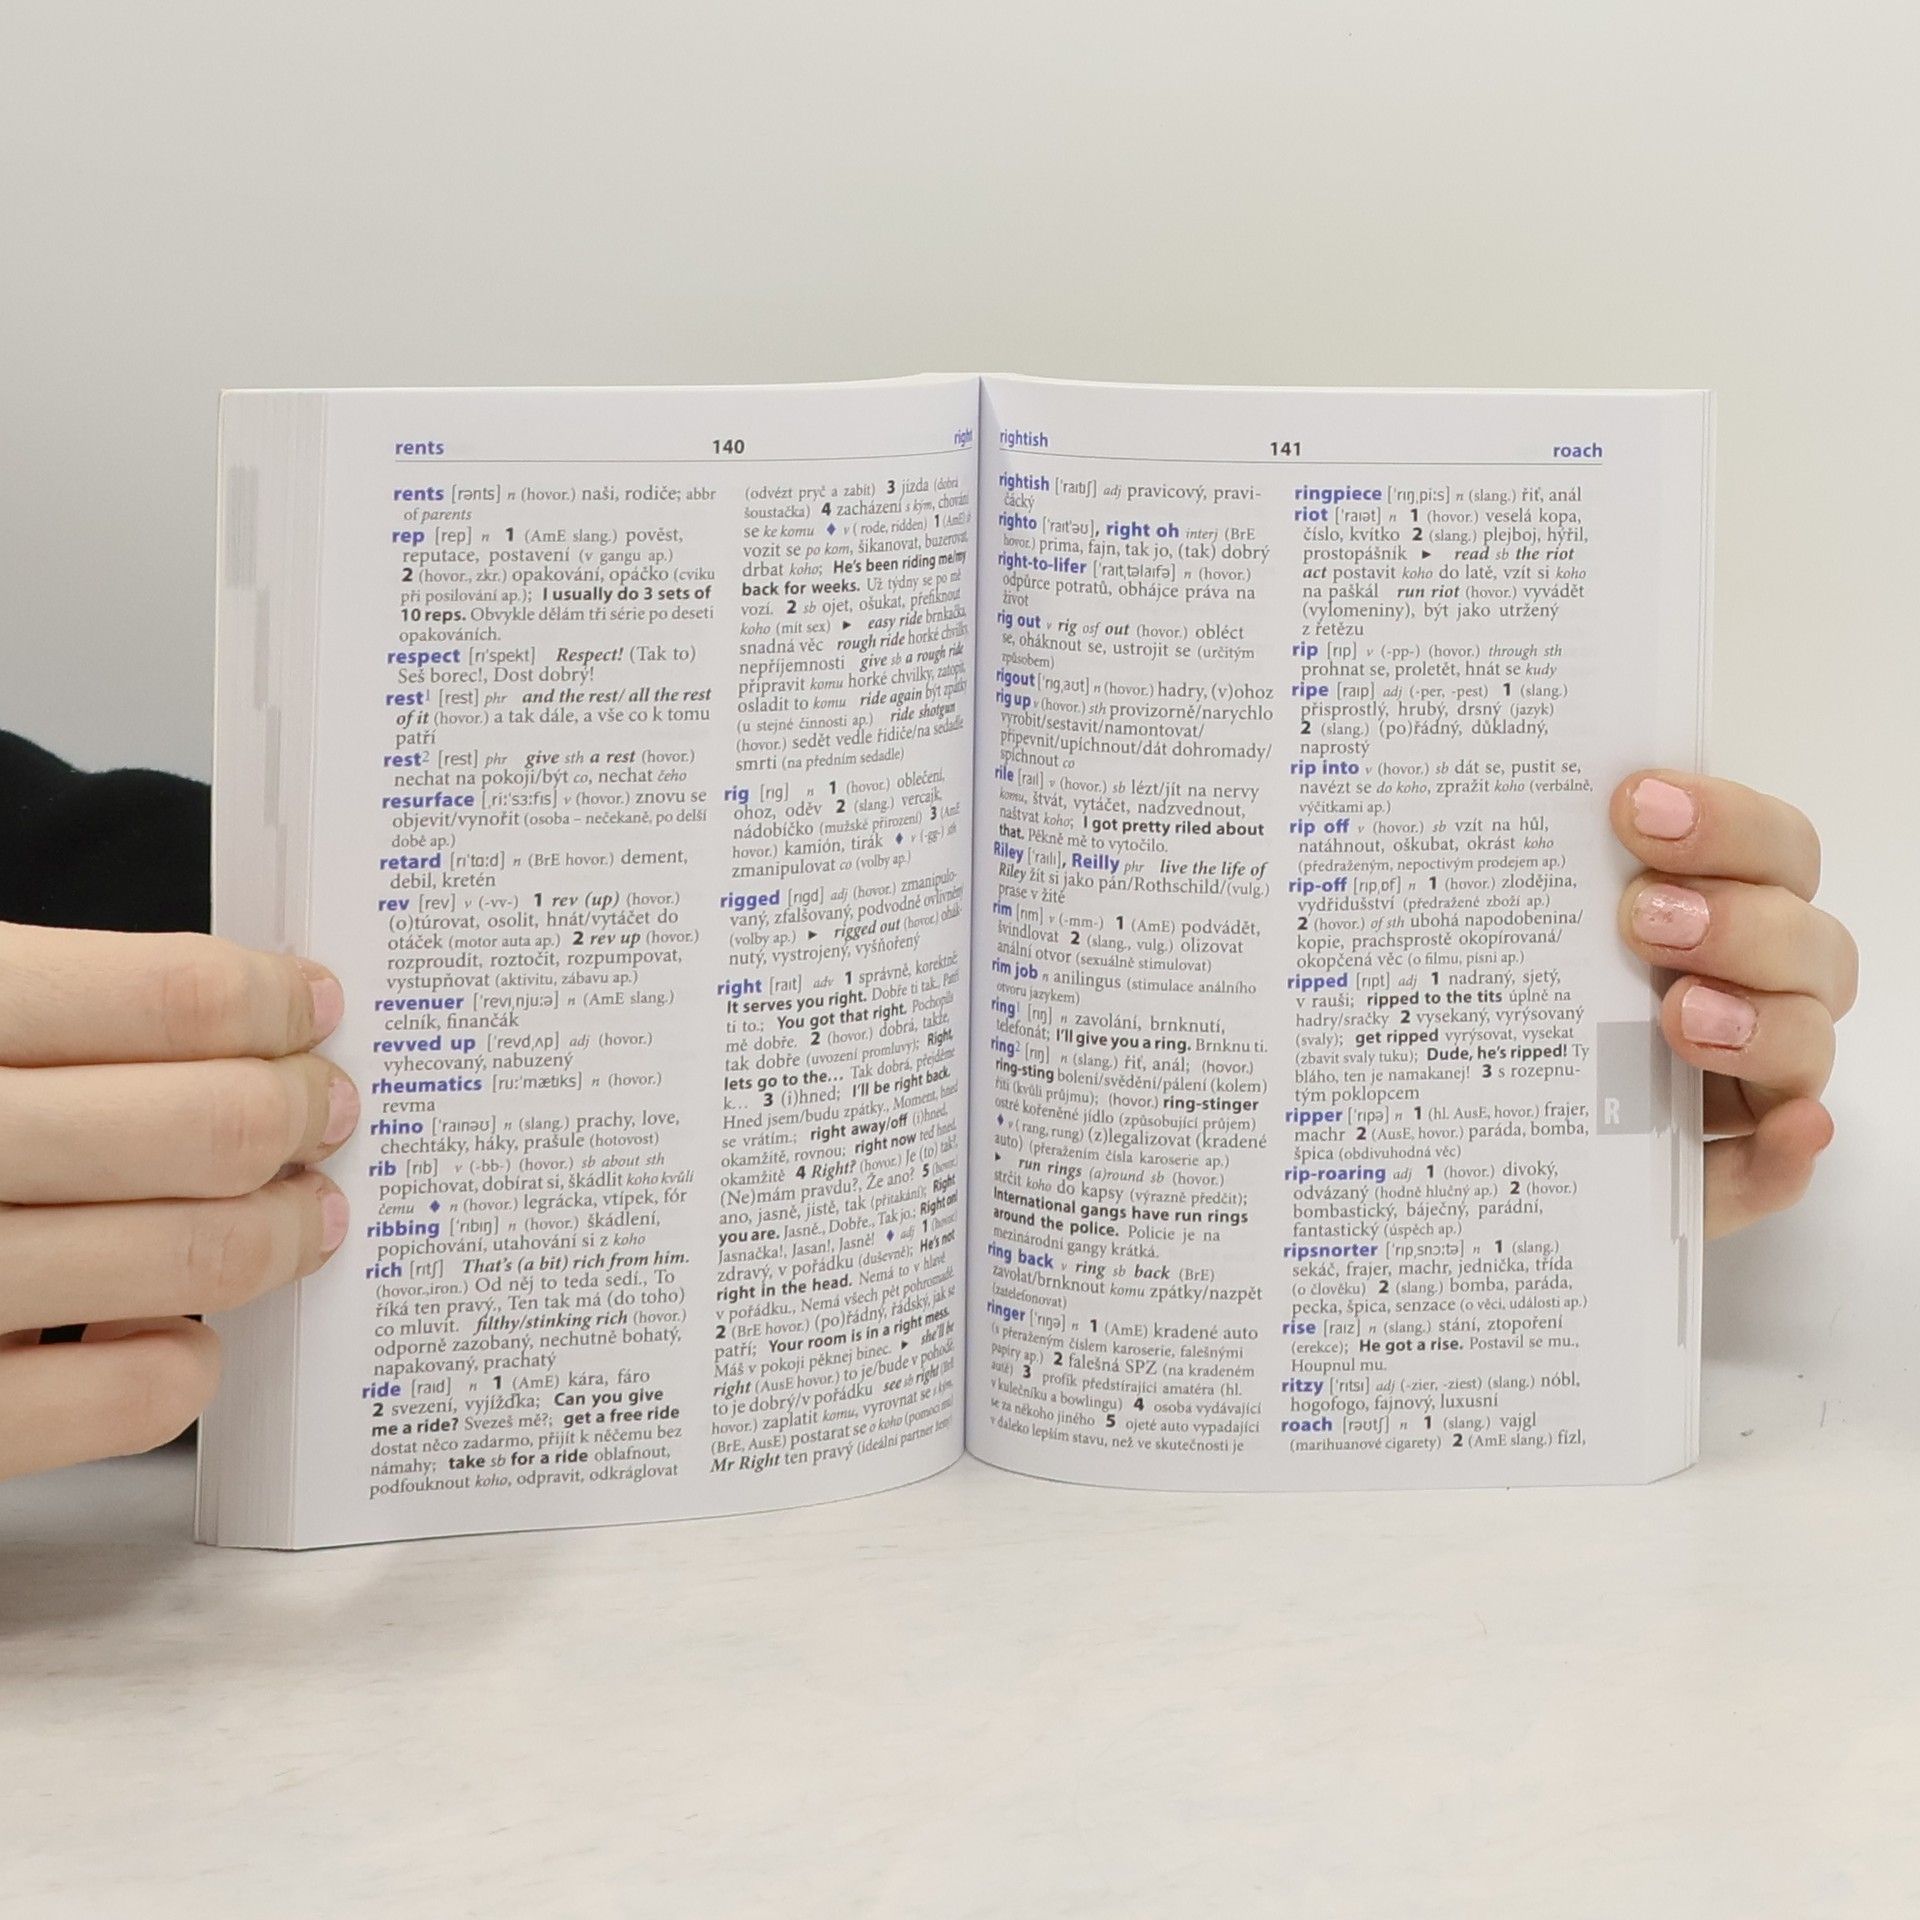 rents 140 right
rents [rənts] n (hovor.) naši, rodiče; abbr
of parents
rep [rep] n 1 (AmE slang.) pověst,
reputace, postavení (v gangu ap.)
2 (hovor., zkr.) opakování, opáčko (cviku
při posilování ap.); I usually do 3 sets of
10 reps. Obvykle dělám tři série po deseti
opakováních.
respect [rɪ'spekt] Respect! (Tak to)
Seš borec!, Dost dobrý!
rest¹ [rest] phr and the rest/ all the rest
of it (hovor.) a tak dále, a vše co k tomu
patří
rest² [rest] phr give sth a rest (hovor.)
nechat na pokoji/být co, nechat čeho
resurface [ˌriː'sɜːfɪs] v (hovor.) znovu se
objevit/vynořit (osoba – nečekaně, po delší
době ap.)
retard [rɪ'tɑːd] n (BrE hovor.) dement,
debil, kretén
rev [rev] v (-vv-) 1 rev (up) (hovor.)
(o)túrovat, osolit, hnát/vytáčet do
otáček (motor auta ap.) 2 rev up (hovor.)
rozproudit, roztočit, rozpumpovat,
vystupňovat (aktivitu, zábavu ap.)
revenuer ['revɪˌnjuːə] n (AmE slang.)
celník, finančák
revved up ['revdˌʌp] adj (hovor.)
vyhecovaný, nabuzený
rheumatics [ruː'mætɪks] n (hovor.)
revma
rhino ['raɪnəʊ] n (slang.) prachy, love,
chechtáky, háky, prašule (hotovost)
rib [rɪb] v (-bb-) (hovor.) sb about sth
popichovat, dobírat si, škádlit koho kvůli
čemu ♦ n (hovor.) legrácka, vtípek, fór
ribbing ['rɪbɪŋ] n (hovor.) škádlení,
popichování, utahování si z koho
rich [rɪtʃ] That's (a bit) rich from him.
(hovor., iron.) Od něj to teda sedí., To
říká ten pravý., Ten tak má (do toho)
co mluvit. filthy/stinking rich (hovor.)
odporně zazobaný, nechutně bohatý,
napakovaný, prachatý
ride [raɪd] n 1 (AmE) kára, fáro
2 svezení, vyjížďka; Can you give
me a ride? Svezeš mě?; get a free ride
dostat něco zadarmo, přijít k něčemu bez
námahy; take sb for a ride oblafnout,
podfouknout koho, odpravit, odkráglovat
(odvézt pryč a zabít) 3 jízda (dobrá
šoustačka) 4 zacházení s kým, chování
se ke komu ♦ v ( rode, ridden) 1 (AmE) sb
vozit se po kom, šikanovat, buzerovat,
drbat koho; He's been riding me/my
back for weeks. Už týdny se po mě
vozí. 2 sb ojet, ošukat, přefiknout
koho (mít sex) ► easy ride brnkačka,
snadná věc rough ride horké chvilky,
nepříjemnosti give sb a rough ride
připravit komu horké chvilky, zatopit,
osladit to komu ride again být zpátky
(u stejné činnosti ap.) ride shotgun
(hovor.) sedět vedle řidiče/na sedadle
smrti (na předním sedadle)
rig [rɪg] n 1 (hovor.) oblečení,
ohoz, oděv 2 (slang.) vercajk,
nádobíčko (mužské přirození) 3 (AmE
hovor.) kamión, tirák ♦ v (-gg-) sth
zmanipulovat co (volby ap.)
rigged [rɪgd] adj (hovor.) zmanipulo-
vaný, zfalšovaný, podvodně ovlivněný
(volby ap.) ► rigged out (hovor.) ohák-
nutý, vystrojený, vyšňořený
right [raɪt] adv 1 správně, korektně
It serves you right. Dobře ti tak., Patří
ti to.; You got that right. Pochopils
mě dobře. 2 (hovor.) dobrá, takže,
tak dobře (uvození promluvy); Right,
lets go to the... Tak dobrá, přejděme
k... 3 (i)hned; I'll be right back.
Hned jsem/budu zpátky., Moment, hned
se vrátím.; right away/off (i)hned,
okamžitě, rovnou; right now teď hned,
okamžitě 4 Right? (hovor.) Je (to) tak?,
(Ne)mám pravdu?, Že ano? 5 (hovor.)
ano, jasně, jistě, tak (přitakání); Right
you are. Jasně., Dobře., Tak jo.; Right on!
Jasnačka!, Jasan!, Jasně! ♦ adj 1 (hovor.)
zdravý, v pořádku (duševně); He's not
right in the head. Nemá to v hlavě
v pořádku., Nemá všech pět pohromadě.
2 (BrE hovor.) (po)řádný, řádský, jak se
patří; Your room is in a right mess.
Máš v pokoji pěknej binec. ► she'll be
right (AusE hovor.) to je/bude v pohodě,
to je dobrý/v pořádku see sb right (BrE
hovor.) zaplatit komu, vyrovnat se s kým,
(BrE, AusE) postarat se o koho (pomocí mu)
Mr Right ten pravý (ideální partner ženy)
rightish 141 roach
rightish ['raɪtɪʃ] adj pravicový, pravi-
čácký
righto ['raɪt'əʊ], right oh interj (BrE
hovor.) prima, fajn, tak jo, (tak) dobrý
right-to-lifer ['raɪtˌtəlaɪfə] n (hovor.)
odpůrce potratů, obhájce práva na
život
rig out v rig osf out (hovor.) obléct
se, oháknout se, ustrojit se (určitým
způsobem)
rigout ['rɪgˌaʊt] n (hovor.) hadry, (v)ohoz
rig up v (hovor.) sth provizorně/narychlo
vyrobit/sestavit/namontovat/
připevnit/upíchnout/dát dohromady/
spíchnout co
rile [raɪl] v (hovor.) sb lézt/jít na nervy
komu, štvát, vytáčet, nadzvednout,
naštvat koho; I got pretty riled about
that. Pěkně mě to vytočilo.
Riley ['raɪli], Reilly phr live the life of
Riley žít si jako pán/Rothschild/(vulg.)
prase v žitě
rim [rɪm] v (-mm-) 1 (AmE) podvádět,
švindlovat 2 (slang., vulg.) olizovat
anální otvor (sexuálně stimulovat)
rim job n anilingus (stimulace análního
otvoru jazykem)
ring¹ [rɪŋ] n zavolání, brnknutí,
telefonát; I'll give you a ring. Brnknu ti.
ring² [rɪŋ] n (slang.) řiť, anál; (hovor.)
ring-sting bolení/svědění/pálení (kolem)
řiti (kvůli průjmu); (hovor.) ring-stinger
ostré kořeněné jídlo (způsobující průjem)
♦ v ( rang, rung) (z)legalizovat (kradené
auto) (přeražením čísla karoserie ap.)
► run rings (a)round sb (hovor.)
strčit koho do kapsy (výrazně předčit);
International gangs have run rings
around the police. Policie je na
mezinárodní gangy krátká.
ring back v ring sb back (BrE)
zavolat/brnknout komu zpátky/nazpět
(zatelefonovat)
ringer ['rɪŋə] n 1 (AmE) kradené auto
(s přeraženým číslem karoserie, falešnými
papíry ap.) 2 falešná SPZ (na kradeném
autě) 3 profík předstírající amatéra (hl.
v kulečníku a bowlingu) 4 osoba vydávající
se za někoho jiného 5 ojeté auto vypadající
v daleko lepším stavu, než ve skutečnosti je
ringpiece ['rɪŋˌpiːs] n (slang.) řiť, anál
riot ['raɪət] n 1 (hovor.) veselá kopa,
číslo, kvítko 2 (slang.) plejboj, hýřil,
prostopášník ► read sb the riot
act postavit koho do latě, vzít si koho
na paškál run riot (hovor.) vyvádět
(vylomeniny), být jako utržený
z řetězu
rip [rɪp] v (-pp-) (hovor.) through sth
prohnat se, proletět, hnát se kudy
ripe [raɪp] adj (-per, -pest) 1 (slang.)
přisprostlý, hrubý, drsný (jazyk)
2 (slang.) (po)řádný, důkladný,
naprostý
rip into v (hovor.) sb dát se, pustit se,
navézt se do koho, zpražit koho (verbálně,
výčitkami ap.)
rip off v (hovor.) sb vzít na hůl,
natáhnout, oškubat, okrást koho
(předraženým, nepoctivým prodejem ap.)
rip-off [rɪpˌɒf] n 1 (hovor.) zlodějina,
vydřidušství (předražené zboží ap.)
2 (hovor.) of sth ubohá napodobenina/
kopie, prachsprostě okopírovaná/
okopčená věc (o filmu, písni ap.)
ripped [rɪpt] adj 1 nadraný, sjetý,
v rauši; ripped to the tits úplně na
hadry/sračky 2 vysekaný, vyrýsovaný
(svaly); get ripped vyrýsovat, vysekat
(zbavit svaly tuku); Dude, he's ripped! Ty
bláho, ten je namakanej! 3 s rozepnu-
tým poklopcem
ripper ['rɪpə] n 1 (hl. AusE, hovor.) frajer,
machr 2 (AusE, hovor.) paráda, bomba,
špica (obdivuhodná věc)
rip-roaring adj 1 (hovor.) divoký,
odvázaný (hodně hlučný ap.) 2 (hovor.)
bombastický, báječný, parádní,
fantastický (úspěch ap.)
ripsnorter ['rɪpˌsnɔːtə] n 1 (slang.)
sekáč, frajer, machr, jednička, třída
(o člověku) 2 (slang.) bomba, paráda,
pecka, špica, senzace (o věci, události ap.)
rise [raɪz] n (slang.) stání, ztopoření
(erekce); He got a rise. Postavil se mu.,
Houpnul mu.
ritzy ['rɪtsɪ] adj (-zier, -ziest) (slang.) nóbl,
hogofogo, fajnový, luxusní
roach [rəʊtʃ] n 1 (slang.) vajgl
(marihuanové cigarety) 2 (AmE slang.) fízl,
R